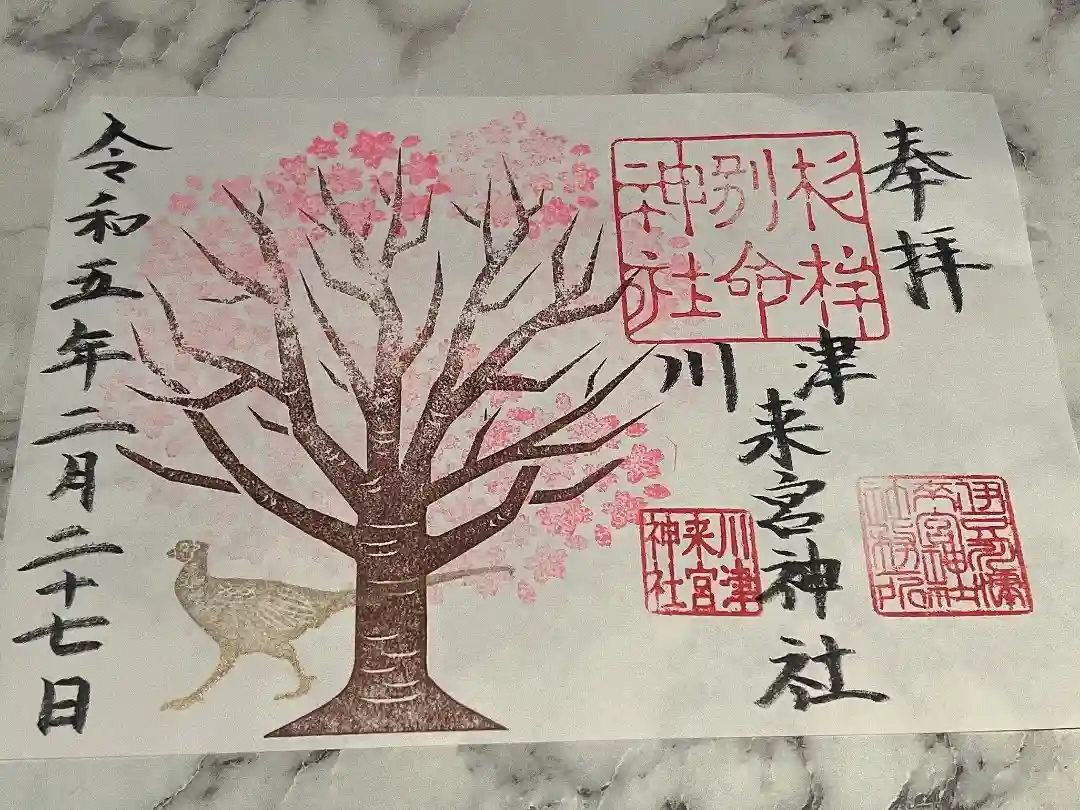 奉拝
杉桙
別命
神社
川津来宮神社
来宮神社
社務所
川津
来宮
神社
令和五年二月二十七日